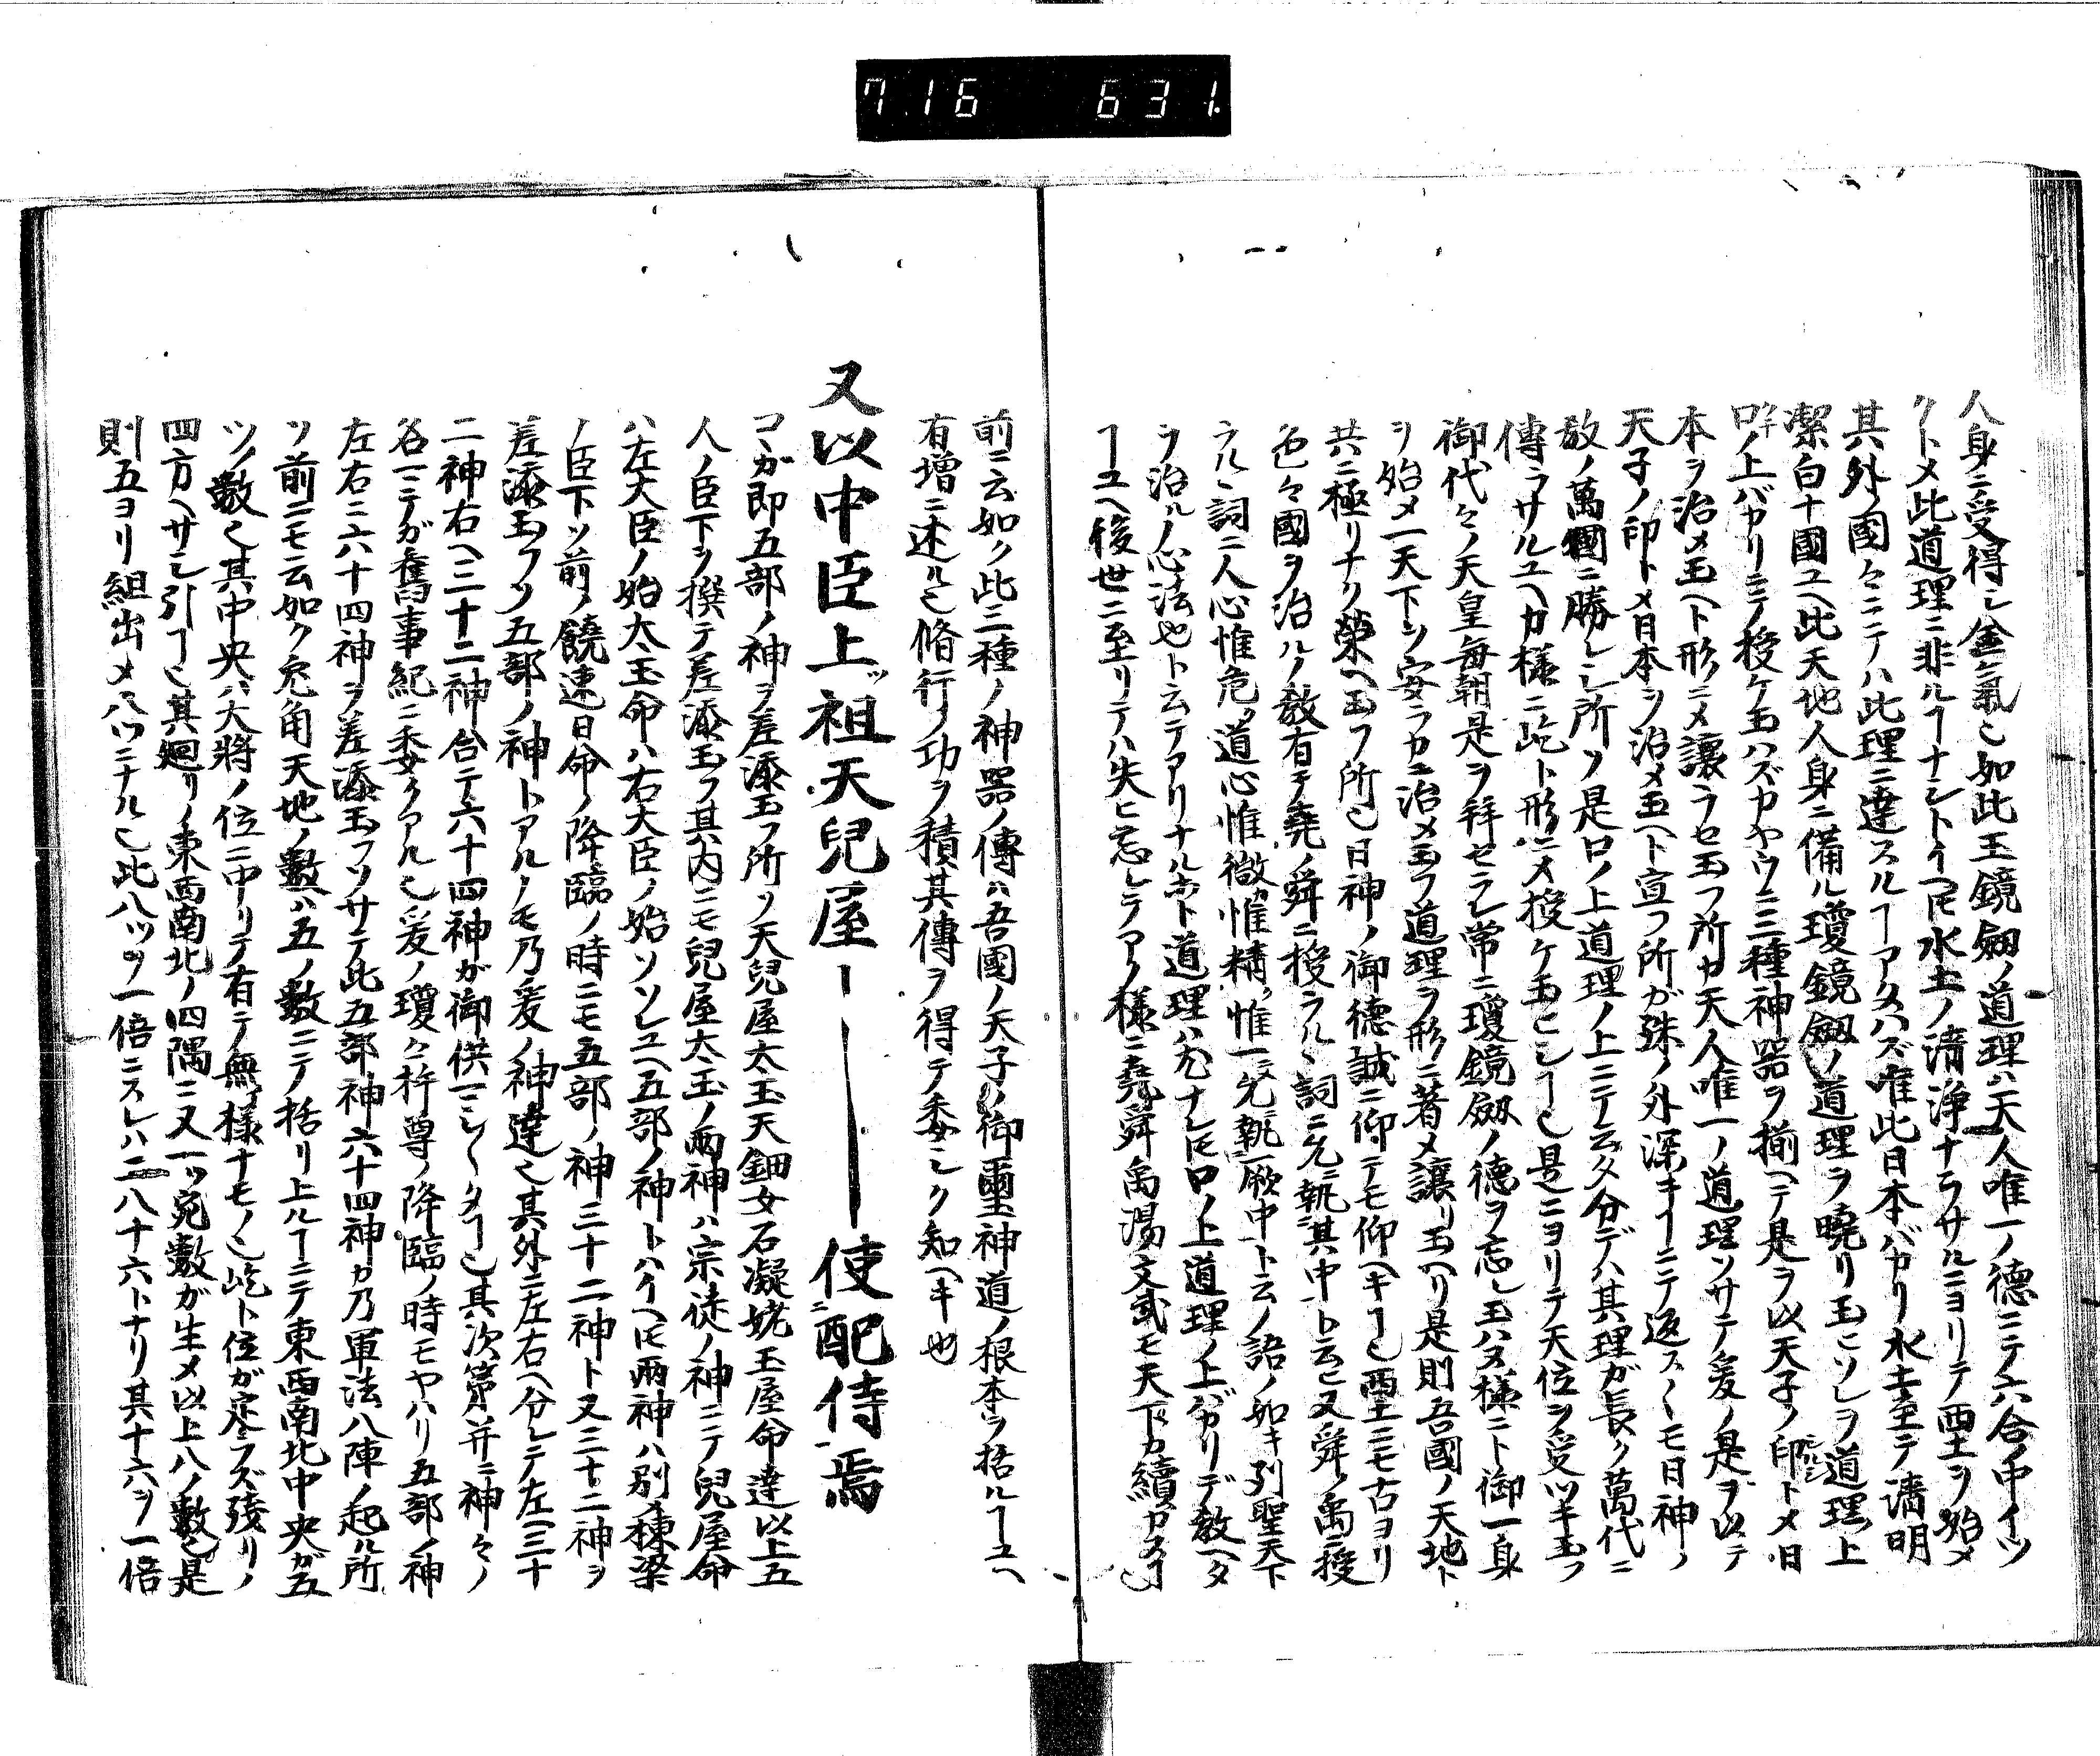 7 16 631
人身ニ受得シ金氣也如此玉鏡劔ノ道理ハ天人唯一ノ德ニテ六合ノ中イツ
クトメ此道理ニ非ルヿナシトイヘ𪜈水土ノ清浄ナラサルニヨリテ西土ヲ始メ
其外ノ國々ニテハ此理ニ達スルヿアタハズ唯此日本バカリ水土至テ清明
潔白ナ國ユヘ此天地人身ニ備ル瓊鏡劔ノ道理ヲ曉リ玉ヒソレヲ道理上
口ノ上バカリニテ授ケ玉ハズカヤウニ三種神器ヲ揃ヘテ是ヲ以天子ノ印トメ日
本ヲ治メ玉ヘト形ニメ讓ラセ玉フ所カ天人唯一ノ道理ソサテ爰ノ是ヲ以テ
天子ノ印トメ日本ヲ治メ玉ヘト宣フ所ガ殊ノ外深キヿニテ返ス〱モ日神ノ
敎ノ萬國ニ勝レシ所ソ是口ノ上道理ノ上ニテ云タ分デハ其理ガ長ク萬代ニ
傳ラサルユヘカ様ニ屹ト形ニメ授ケ玉ヒシヿ也是ニヨリテ天位ヲ受ツキ玉フ
御代々ノ天皇每朝是ヲ拜セラレ常ニ瓊鏡劔ノ德ヲ忘レ玉ハヌ様ニト御一身
ヲ始メ一天下ヲ安ラカニ治メ玉フ道理ヲ形ニ著メ讓リ玉ヘリ是則吾國ノ天地ト
共ニ極リナク榮ヘ玉フ所也日神ノ御德誠ニ仰テモ仰ヘキヿ也西土ニモ古ヨリ
色々國ヲ治ルノ敎有テ堯ノ舜ニ授ラルヽ詞ニ允執其中ト云ヒ又舜ノ禹ニ授
ラルヽ詞ニ人心惟危道心惟微惟精惟一允執厥中ト云ノ語ノ如キ列聖天下
ヲ治ルノ心法也ト云テアリナルホト道理ハ尤ナレ𪜈口ノ上道理ノ上バカリデ敎ヘタ
ヿユヘ後世ニ至リテハ失ヒ忘レテアノ様ニ堯舜禹湯文武モ天下カ續カヌ
前ニ云如ク此三種ノ神器ノ傳ハ吾國ノ天子ノ御璽神道ノ根本ヲ括ルヿユヘ
有增ニ述ル也脩行ノ功ヲ積其傳ヲ得テ委シク知ヘキ也
又以中臣上祖天兒屋ー――使配侍焉
コヽガ即五部ノ神ヲ差添玉フ所ソ天兒屋太玉天鈿女石凝姥玉屋命達以上五
人ノ臣下ヲ撰テ差添玉フ其内ニモ兒屋太玉ノ兩神ハ宗徒ノ神ニテ兒屋命
ハ左大臣ノ始太玉命ハ右大臣ノ始ソソレユヘ五部ノ神トハイヘ𪜈兩神ハ別棟梁
ノ臣下ソ前ノ饒速日命ノ降臨ノ時ニモ五部ノ神三十二神ト又三十二神ヲ
差添玉フソ五部ノ神トアルノモ乃爰ノ神達也其外ニ左右ヘ分レテ左ヘ三十
二神右ヘ三十二神合テ六十四神ガ御供ニシ〱タヿ也其次第并ニ神々ノ
名ニテガ舊事紀ニ委クアル也爰ノ瓊々杵尊ノ降臨ノ時モヤハリ五部ノ神
左右ニ六十四神ヲ差添玉フソサテ此五部神六十四神カ乃軍法八陣ノ起ル所
ソ前ニモ云如ク兎角天地ノ數ハ五ノ數ニテノ括リ上ルヿニテ東西南北中央ガ五
ツノ數也其中央ハ大將ノ位ニ中リテ有テ無様ナモノ也屹ト位ガ定ラズ殘リノ
四方ヘサシ引ヿ也其廻リノ東西南北ノ四隅ニ又一ツ宛數ガ生メ以上八ノ數也是
則五ヨリ組出メ八ツニナル也此八ツヲ一倍ニスレハ二八十六トナリ其十六ヲ一倍